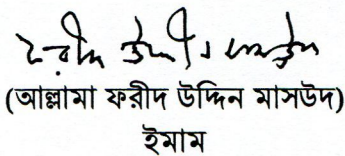 ফরীদ উদ্দীন মাসউদ
(আল্লামা ফরীদ উদ্দিন মাসউদ)
ইমাম